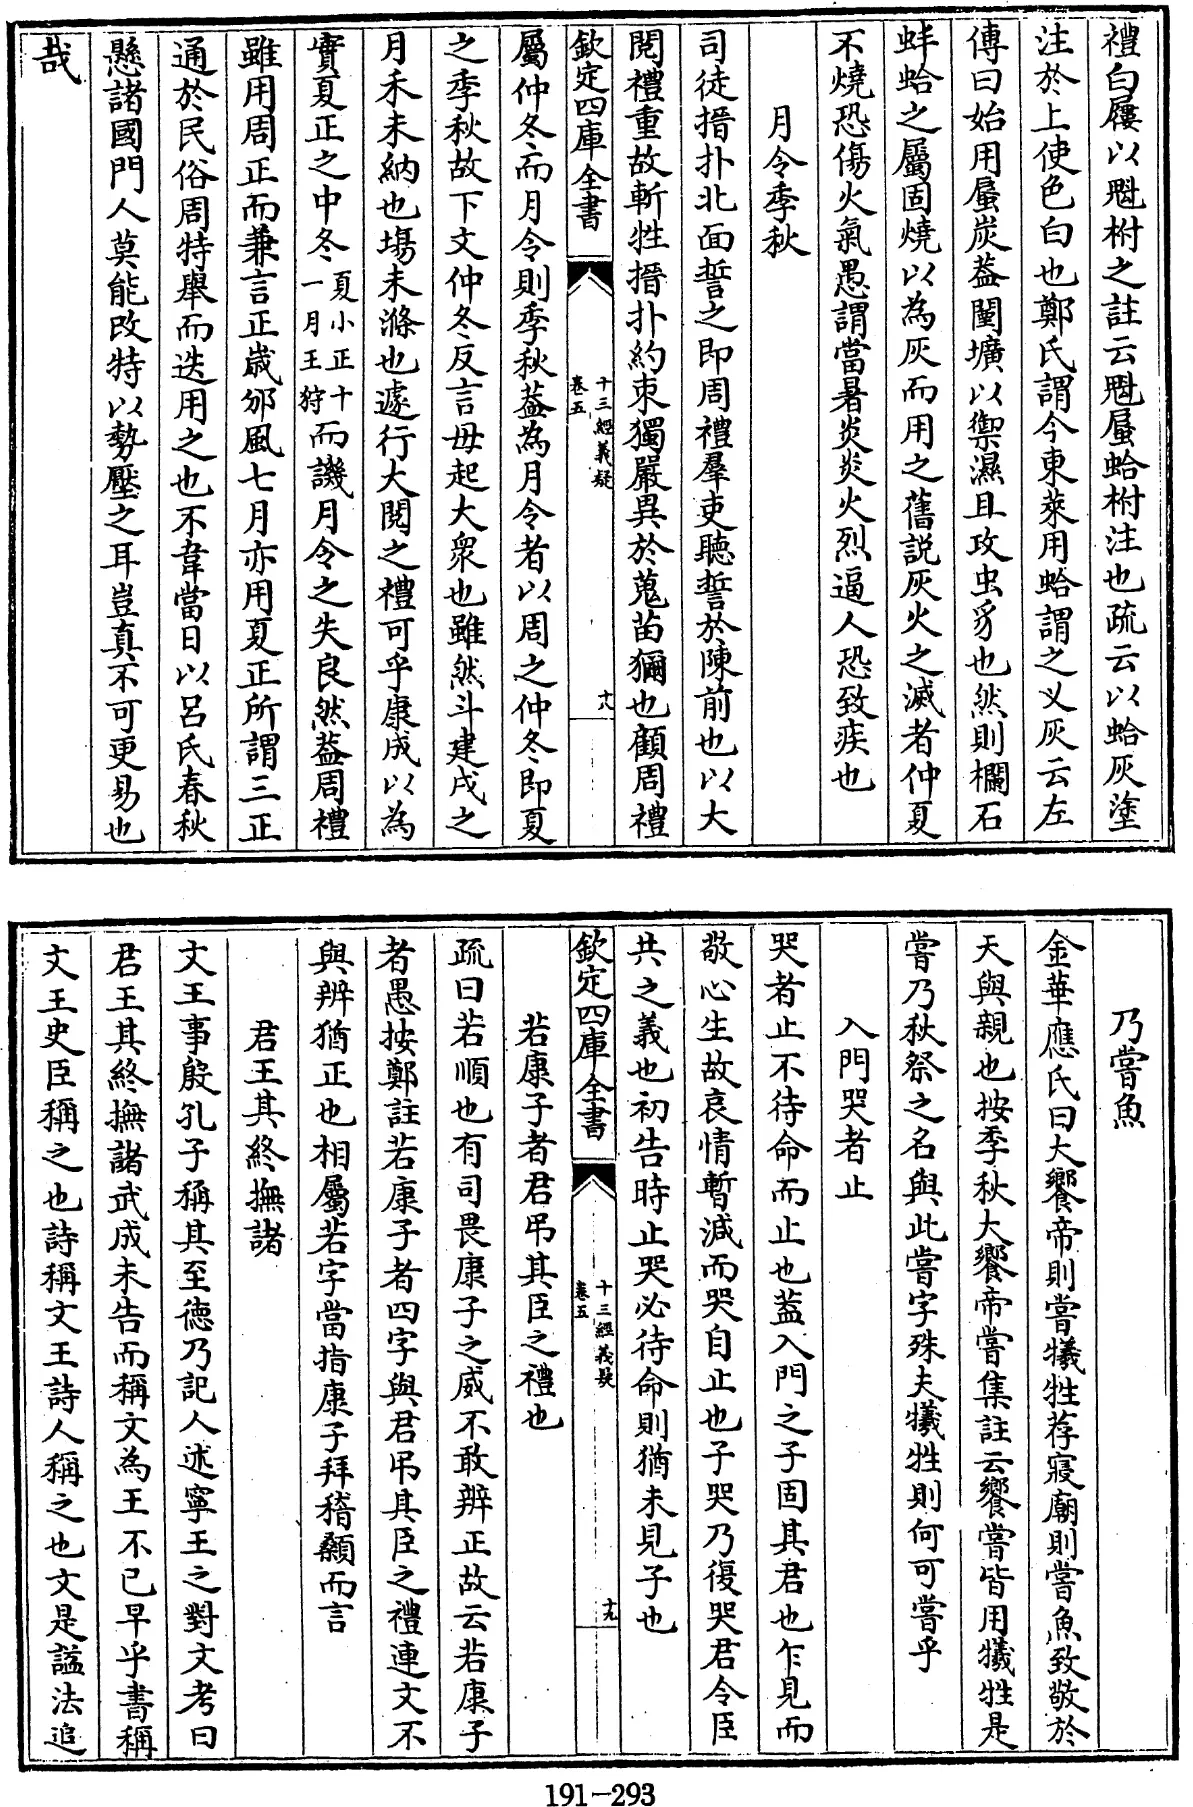 禮白屨以魁柎之註云魁蜃蛤柎注也疏云以蛤灰塗
注於上使色白也鄭氏謂今東萊用蛤謂之义灰云左
傳曰始用蜃炭葢闉壙以禦濕且攻虫豸也然則欄石
蚌蛤之屬固燒以為灰而用之舊説灰火之滅者仲夏
不燒恐傷火氣愚謂當暑炎炎火烈逼人恐致疾也
月令季秋
司徒搢扑北面誓之即周禮羣吏聽誓於陳前也以大
閱禮重故斬牲搢扑約束獨嚴異於蒐苗獮也顧周禮
欽定四庫全書
十三經義疑
卷五
十八
屬仲冬而月令則季秋葢為月令者以周之仲冬即夏
之季秋故下文仲冬反言毋起大衆也雖然斗建戌之
月禾未納也塲未滌也遽行大閱之禮可乎康成以為
實夏正之中冬夏小正十一月王狩而譏月令之失良然葢周禮
雖用周正而兼言正歲邠風七月亦用夏正所謂三正
通於民俗周特舉而迭用之也不韋當日以呂氏春秋
懸諸國門人莫能改特以勢壓之耳豈真不可更易也
哉
乃嘗魚
金華應氏曰大饗帝則嘗犧牲荐寢廟則嘗魚致敬於
天與親也按季秋大饗帝嘗集註云饗嘗皆用犧牲是
嘗乃秋祭之名與此嘗字殊夫犧牲則何可嘗乎
入門哭者止
哭者止不待命而止也葢入門之子固其君也乍見而
敬心生故哀情暫減而哭自止也子哭乃復哭君令臣
共之義也初告時止哭必待命則猶未見子也
欽定四庫全書
十三經義疑
卷五
十九
若康子者君吊其臣之禮也
疏曰若順也有司畏康子之威不敢辨正故云若康子
者愚按鄭註若康子者四字與君吊其臣之禮連文不
與辨猶正也相屬若字當指康子拜稽顙而言
君王其終撫諸
文王事殷孔子稱其至德乃記人述寧王之對文考曰
君王其終撫諸武成未告而稱文為王不已早乎書稱
文王史臣稱之也詩稱文王詩人稱之也文是謚法追
191-293